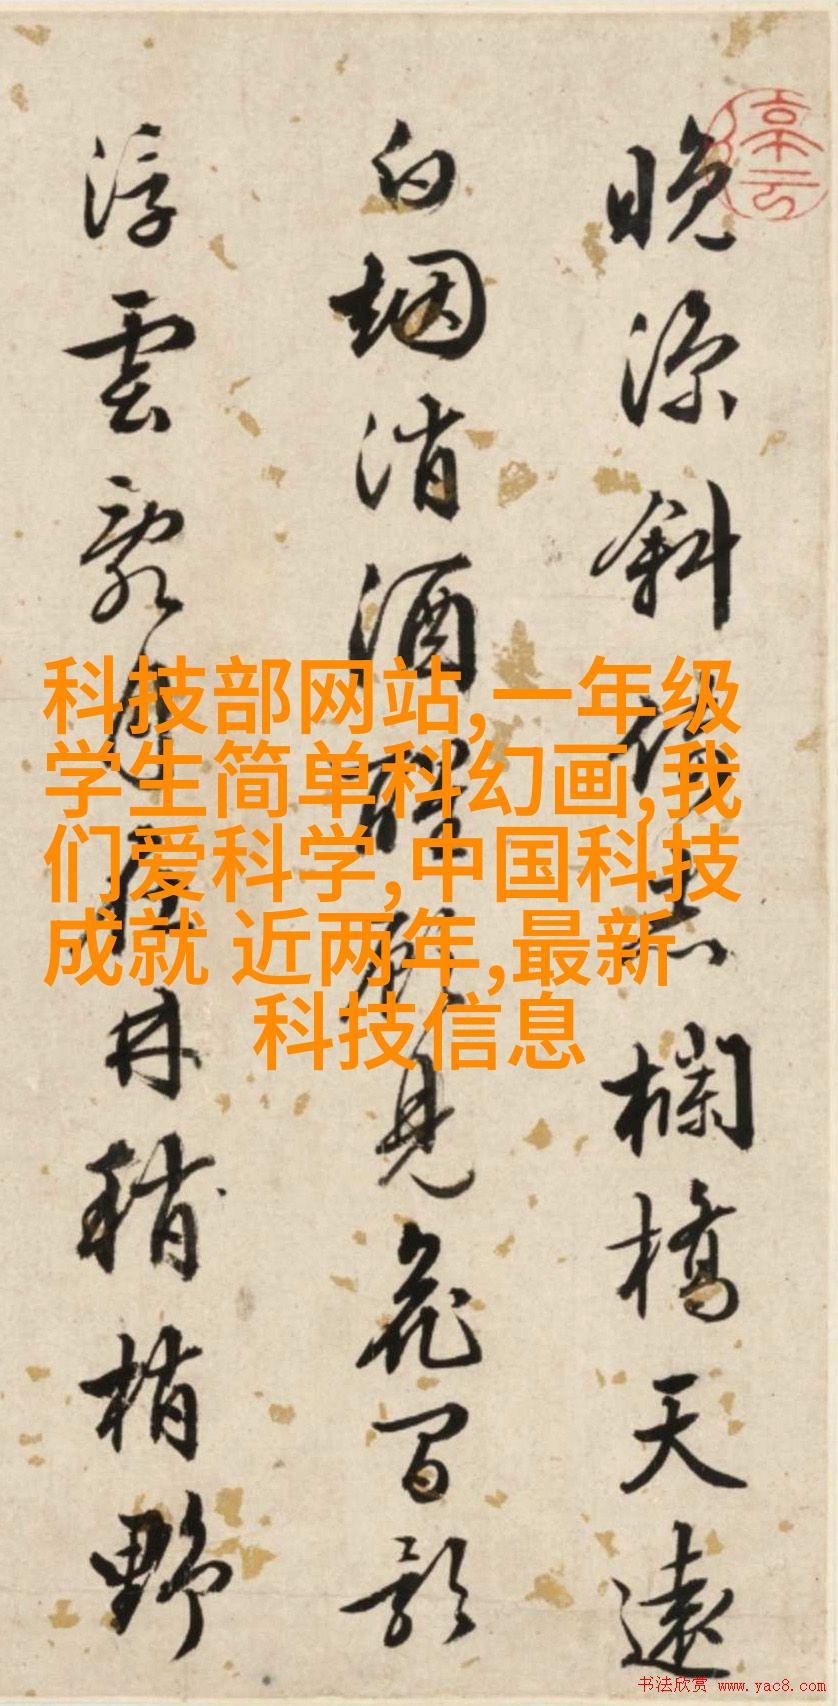 晚涼斜倚赤欄橋天遠
白烟消酒醒見花間影
浮雲林梢野
科技部网站,一年级
学生简单科幻画,我
们爱科学,中国科技
成就 近两年,最新
科技信息
书法欣赏 www.yac8.com